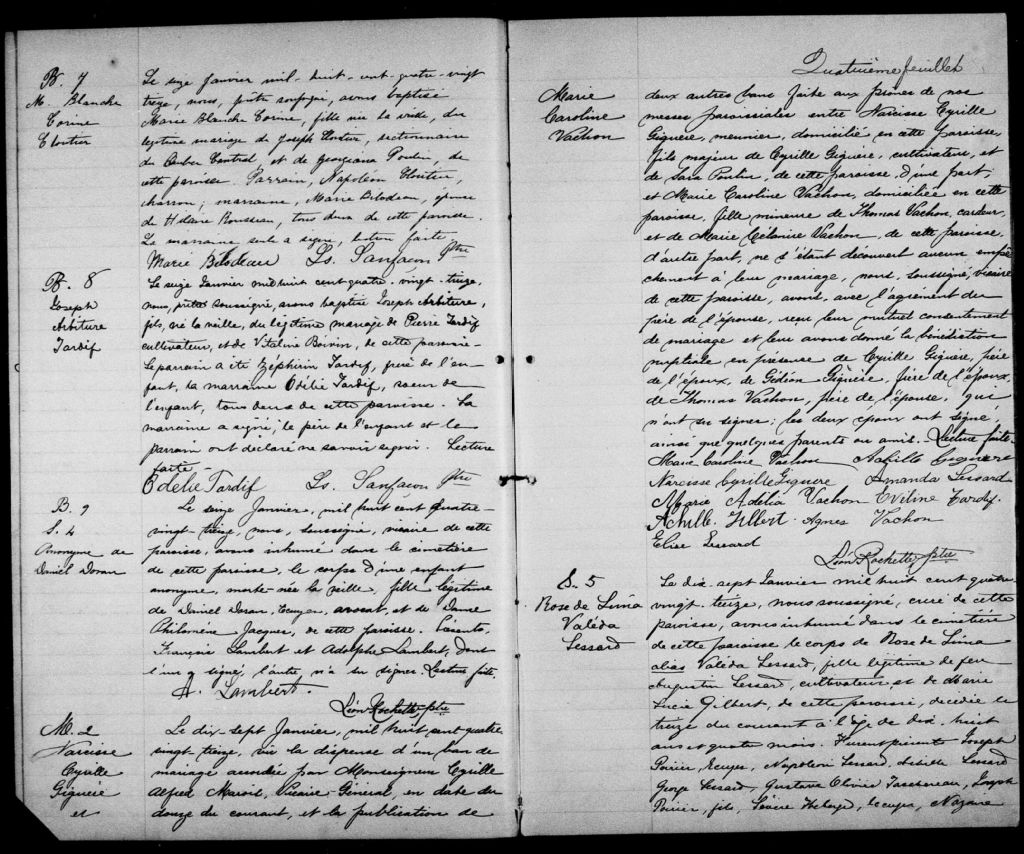 B. 7
M. Blanche
Corine
Cloutier
Le seize Janvier mil-huit-cent-quatre-vingt
treize, nous, prêtre soussigné, avons baptisé
Marie Blanche Corine, fille née la veille, du
légitime mariage de Joseph Cloutier, sectionnaire
du Québec Central, et de Georgiana Poulin, de
cette paroisse. Parrain, Napoléon Cloutier,
charron; marraine, Marie Bilodeau, épouse
de Hilaire Rousseau, tous deux de cette paroisse.
La marraine seule a signé, lecture faite.
Marie Bilodeau Ls. Sanfacon Ptre
B. 8
Joseph
Arbiture
Tardif
Le seize Janvier mil huit cent quatre-vingt-treize,
nous, prêtre soussigné, avons baptisé Joseph Arbiture,
fils, né la veille, du légitime mariage de Pierre Tardif
cultivateur, et de Vitaline Boivin, de cette paroisse.
Le parrain a été Zéphirin Tardif, frère de l'en-
fant, la marraine Odélie Tardif, soeur de
l'enfant, tous deux de cette paroisse. La
marraine a signé; le père de l'enfant et le
parrain ont déclaré ne savoir signer. Lecture
faite.
Odelie Tardif Ls. Sanfacon Ptre
S. 4
Anonyme de
Daniel Doran
Le seize Janvier, mil huit cent quatre-
vingt-treize, nous, soussigné, vicaire de cette
paroisse, avons inhumé dans le cimetière
de cette paroisse, le corps d'une enfant
anonyme, morte-née la veille, fille légitime
de Daniel Doran, Ecuyer, avocat, et de Dame
Philomène Jacques, de cette paroisse. Présents,
François Lambert et Adolphe Lambert, dont
l'un a signé, l'autre n'a su signer. Lecture faite.
A. Lambert.
Léon Rochette, ptre
M. 2
Narcisse
Cyrille
Giguère
et
Le dix-sept Janvier, mil huit cent quatre
vingt-treize, vu la dispense d'un ban de
mariage accordée par Monseigneur Cyrille
Alfred Marois, Vicaire Général, en date du
douze du courant, et la publication de
Quatrième feuillet
Marie
Caroline
Vachon
deux autres bans faite aux prônes de nos
messes paroissiales entre Narcisse Cyrille
Giguère, meunier, domicilié en cette paroisse,
fils majeur de Cyrille Giguère, cultivateur, et
de Sara Poulin, de cette paroisse, d'une part;
et Marie Caroline Vachon, domiciliée en cette
paroisse, fille mineure de Thomas Vachon, cardeur,
et de Marie Mélanise Vachon, de cette paroisse,
d'autre part, ne s'étant découvert aucun empê
chement à leur mariage, nous, soussigné, vicaire
de cette paroisse, avons, avec l'agrément du
père de l'épouse, reçu leur mutuel consentement
de mariage et leur avons donné la bénédiction
nuptiale en présence de Cyrille Giguère, père
de l'époux, de Gédéon Giguère, frère de l'époux,
de Thomas Vachon, père de l'épouse, qui
n'ont su signer; les deux époux ont signé,
ainsi que quelques parents ou amis. Lecture faite.
Marie Caroline Vachon Achille Giguere
Narcisse Cyrille Giguere Amanda Lessard
Marie Adélia Vachon Eveline Tardif
Achille Gilbert Agnes Vachon
Elise Lessard
Léon Rochette, ptre
S. 5
Rose de Lima
Valéda
Lessard
Le dix-sept Janvier mil huit cent quatre
vingt-treize, nous soussigné, curé de cette
paroisse, avons inhumé dans le cimetière
de cette paroisse le corps de Rose de Lima
alias Valéda Lessard, fille légitime de feu
Augustin Lessard, cultivateur, et de Marie
Lucie Gilbert, de cette paroisse, décédée le
treize du courant à l'âge de dix-huit
ans et quatre mois. Furent présents Joseph
Poirier, Ecuyer, Napoléon Lessard, Lessard
George Lessard, Gustave Olivier Taschereau, Joseph
Poirier, fils, ecuyer, Nazaire